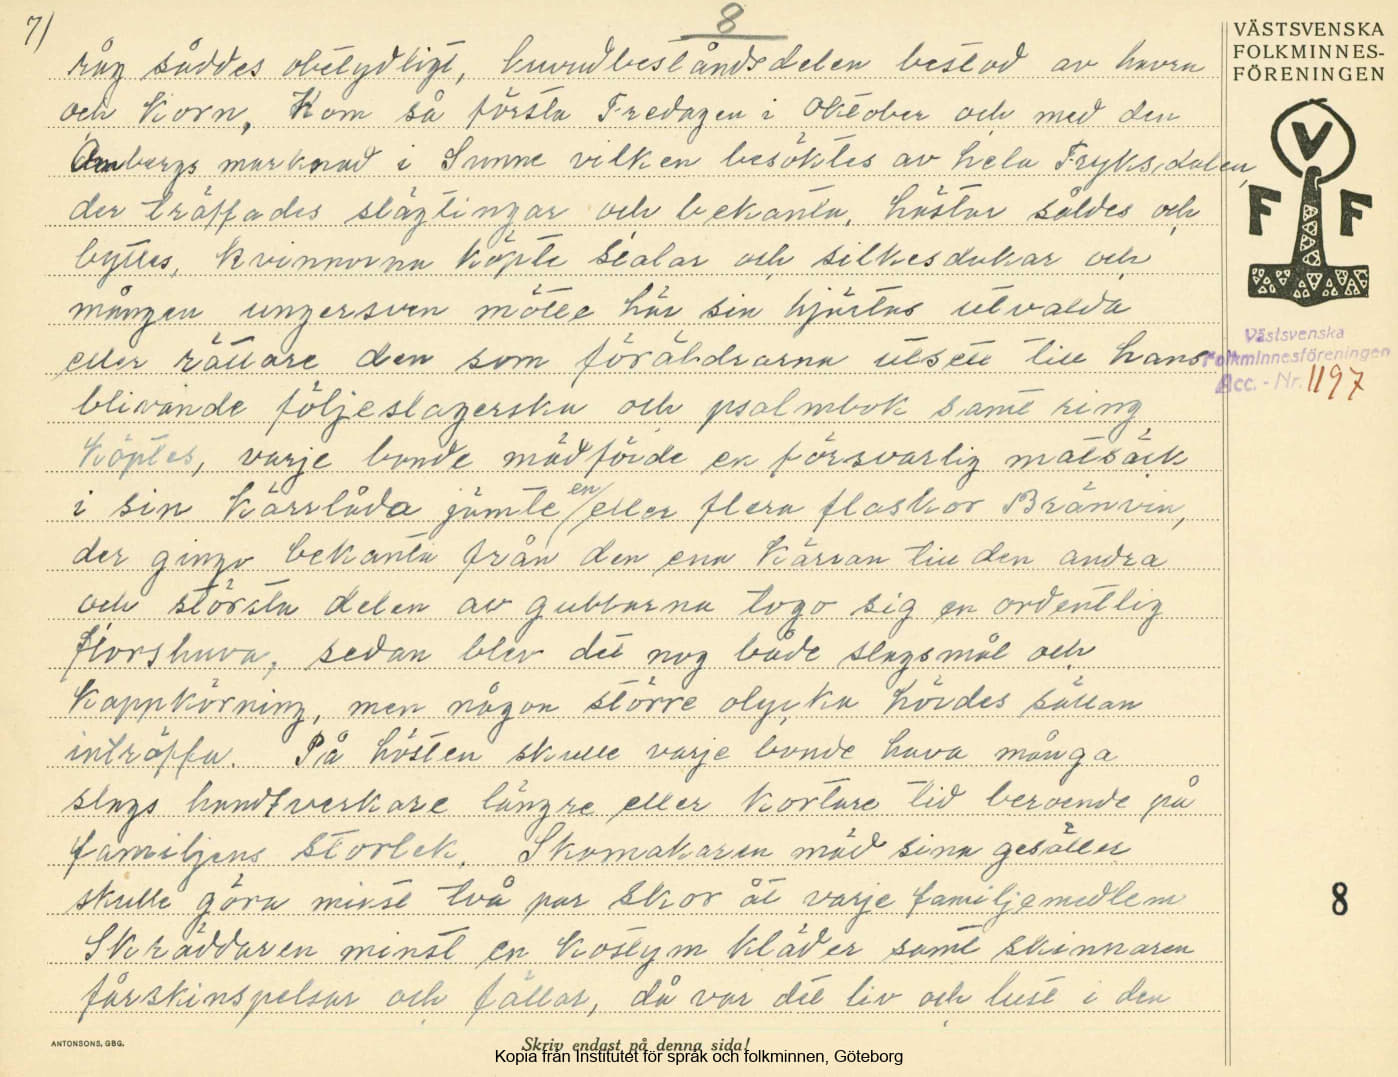 7/
8
VÄSTSVENSKA
FOLKMINNES-
FÖRENINGEN
V
F F
råg såddes obetydligt, huvudbeståndsdelen bestod av havra
och Korn, Kom så första Fredagen i Oktober och med den
Ombergs marknad i Sunne vilken besöktes av hela Fryksdalen,
der träffades slägtingar och bekanta, hästar såldes och
byttes, kvinnorna köpte sialar och silkesdukar och
mången ungersven mötte här sin hjärtas utvalda
eller rättare den som föräldrarna utsett till hans
Västsvenska
Folkminnesföreningen
Acc. - Nr. 1197
blivande följeslagerska och psalmbok samt ring
köptes, varje bonde mädförde en försvarlig matsäck
i sin Kärrlåda jämte en/eller flera flaskor Bränvin,
der gingo bekanta från den ena Kärran till den andra
och största delen av gubbarna togo sig en ordentlig
florshuva, sedan blev dett nog både slagsmål och
Kappkörning, men någon större olycka hördes sällan
inträffa. På hösten skulle varje bonde hava många
slags handtverkare längre eller kortare tid beroende på
familjens storlek. Skomakaren mäd sina gesäller
skulle göra minst två par skor åt varje familjemedlem
8
Skräddaren minst en Kostym kläder samt skinnaren
fårskinspelsar och fällar, då var dett liv och lust i den
ANTONSONS, GBG.
Skriv endast på denna sida!
Kopia från Institutet för språk och folkminnen, Göteborg